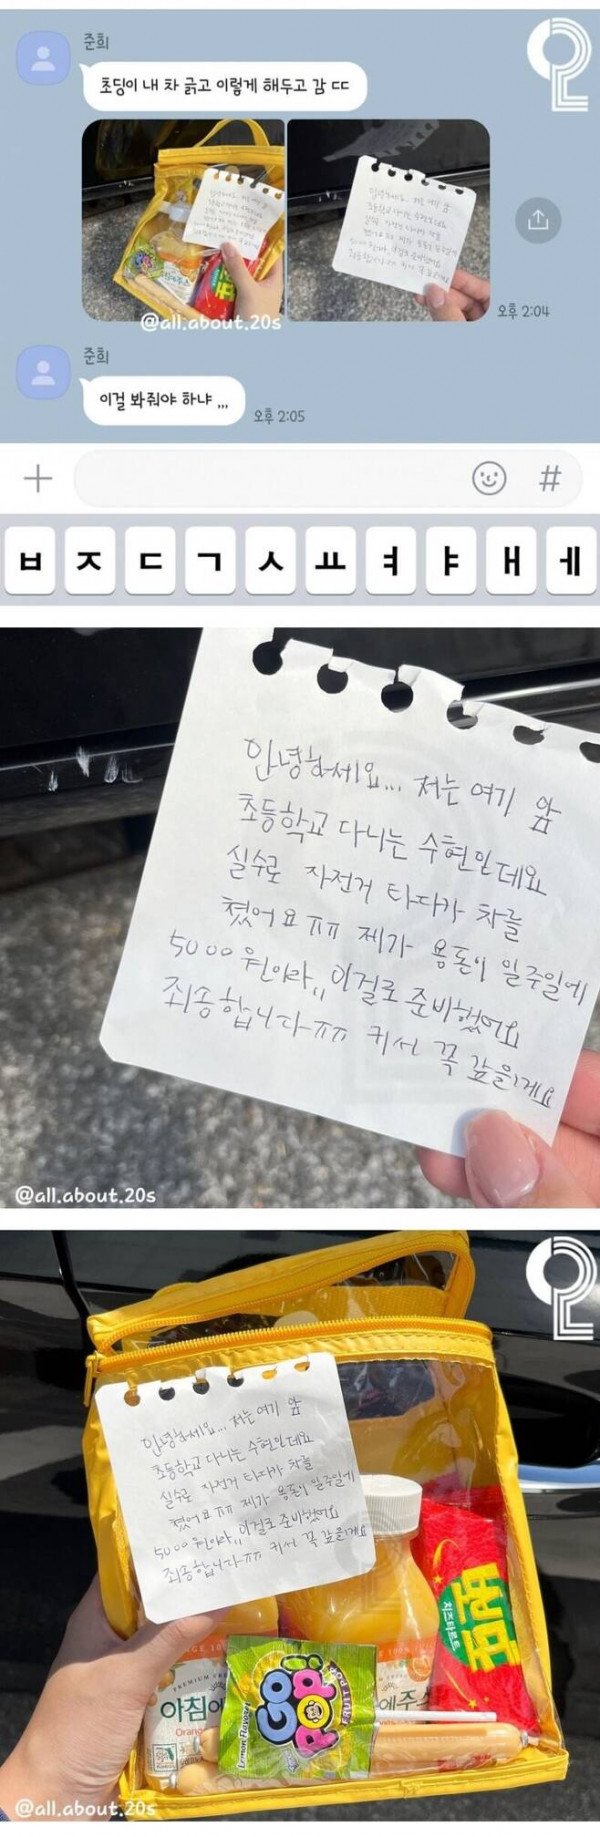 준희
초딩이 내 차 긁고 이렇게 해두고 감 ㄷㄷ
@all.about.20s
오후 2:04
준희
이걸 봐줘야 하냐 ,,,
오후 2:05
#
ㅂ ㅈ ㄷ ㄱ ㅅ ㅛ ㅕ ㅑ ㅐ ㅔ
안녕하세요... 저는 여기 앞
초등학교 다니는 수현인데요
실수로 자전거 타다가 차를
쳤어요 ㅠㅠ 제가 용돈이 일주일에
5000원이라,, 이걸로 준비했어요
죄송합니다ㅠㅠ 커서 꼭 갚을게요
@all.about.20s
안녕하세요... 저는 여기 앞
초등학교 다니는 수현인데요
실수로 자전거 타다가 차를
쳤어요 ㅠㅠ 제가 용돈이 일주일에
5000원이라,, 이걸로 준비했어요
죄송합니다ㅠㅠ 커서 꼭 갚을게요
치즈타르트
PREMIUM
아침에
에주스
Orange
GO!
POP!
FRUIT POP
Lemon Flavour
@all.about.20s